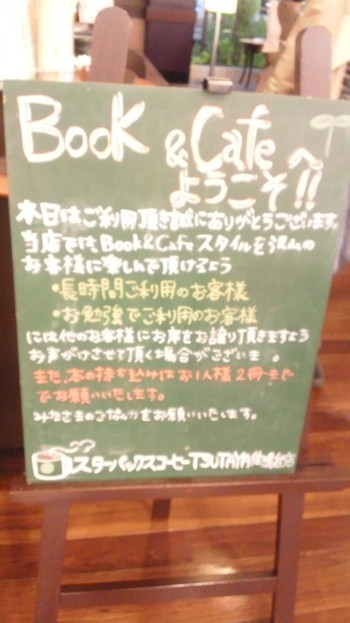 Book & Cafe へ。
ようこそ!!
本日はご利用頂き誠にありがとうございます。
当店ではBook&Cafeスタイルを沢山の
お客様に楽しんで頂けるよう
・長時間ご利用のお客様
・お勉強でご利用のお客様
には他のお客様にお席をお譲り頂きますよう
お声がけさせて頂く場合がございま 。
また、本の持ち込みはお1人様2冊まで
でお願いいたします。
みなさまのご協力をお願いいたします。
スターバックスコーヒーTSUTAYA